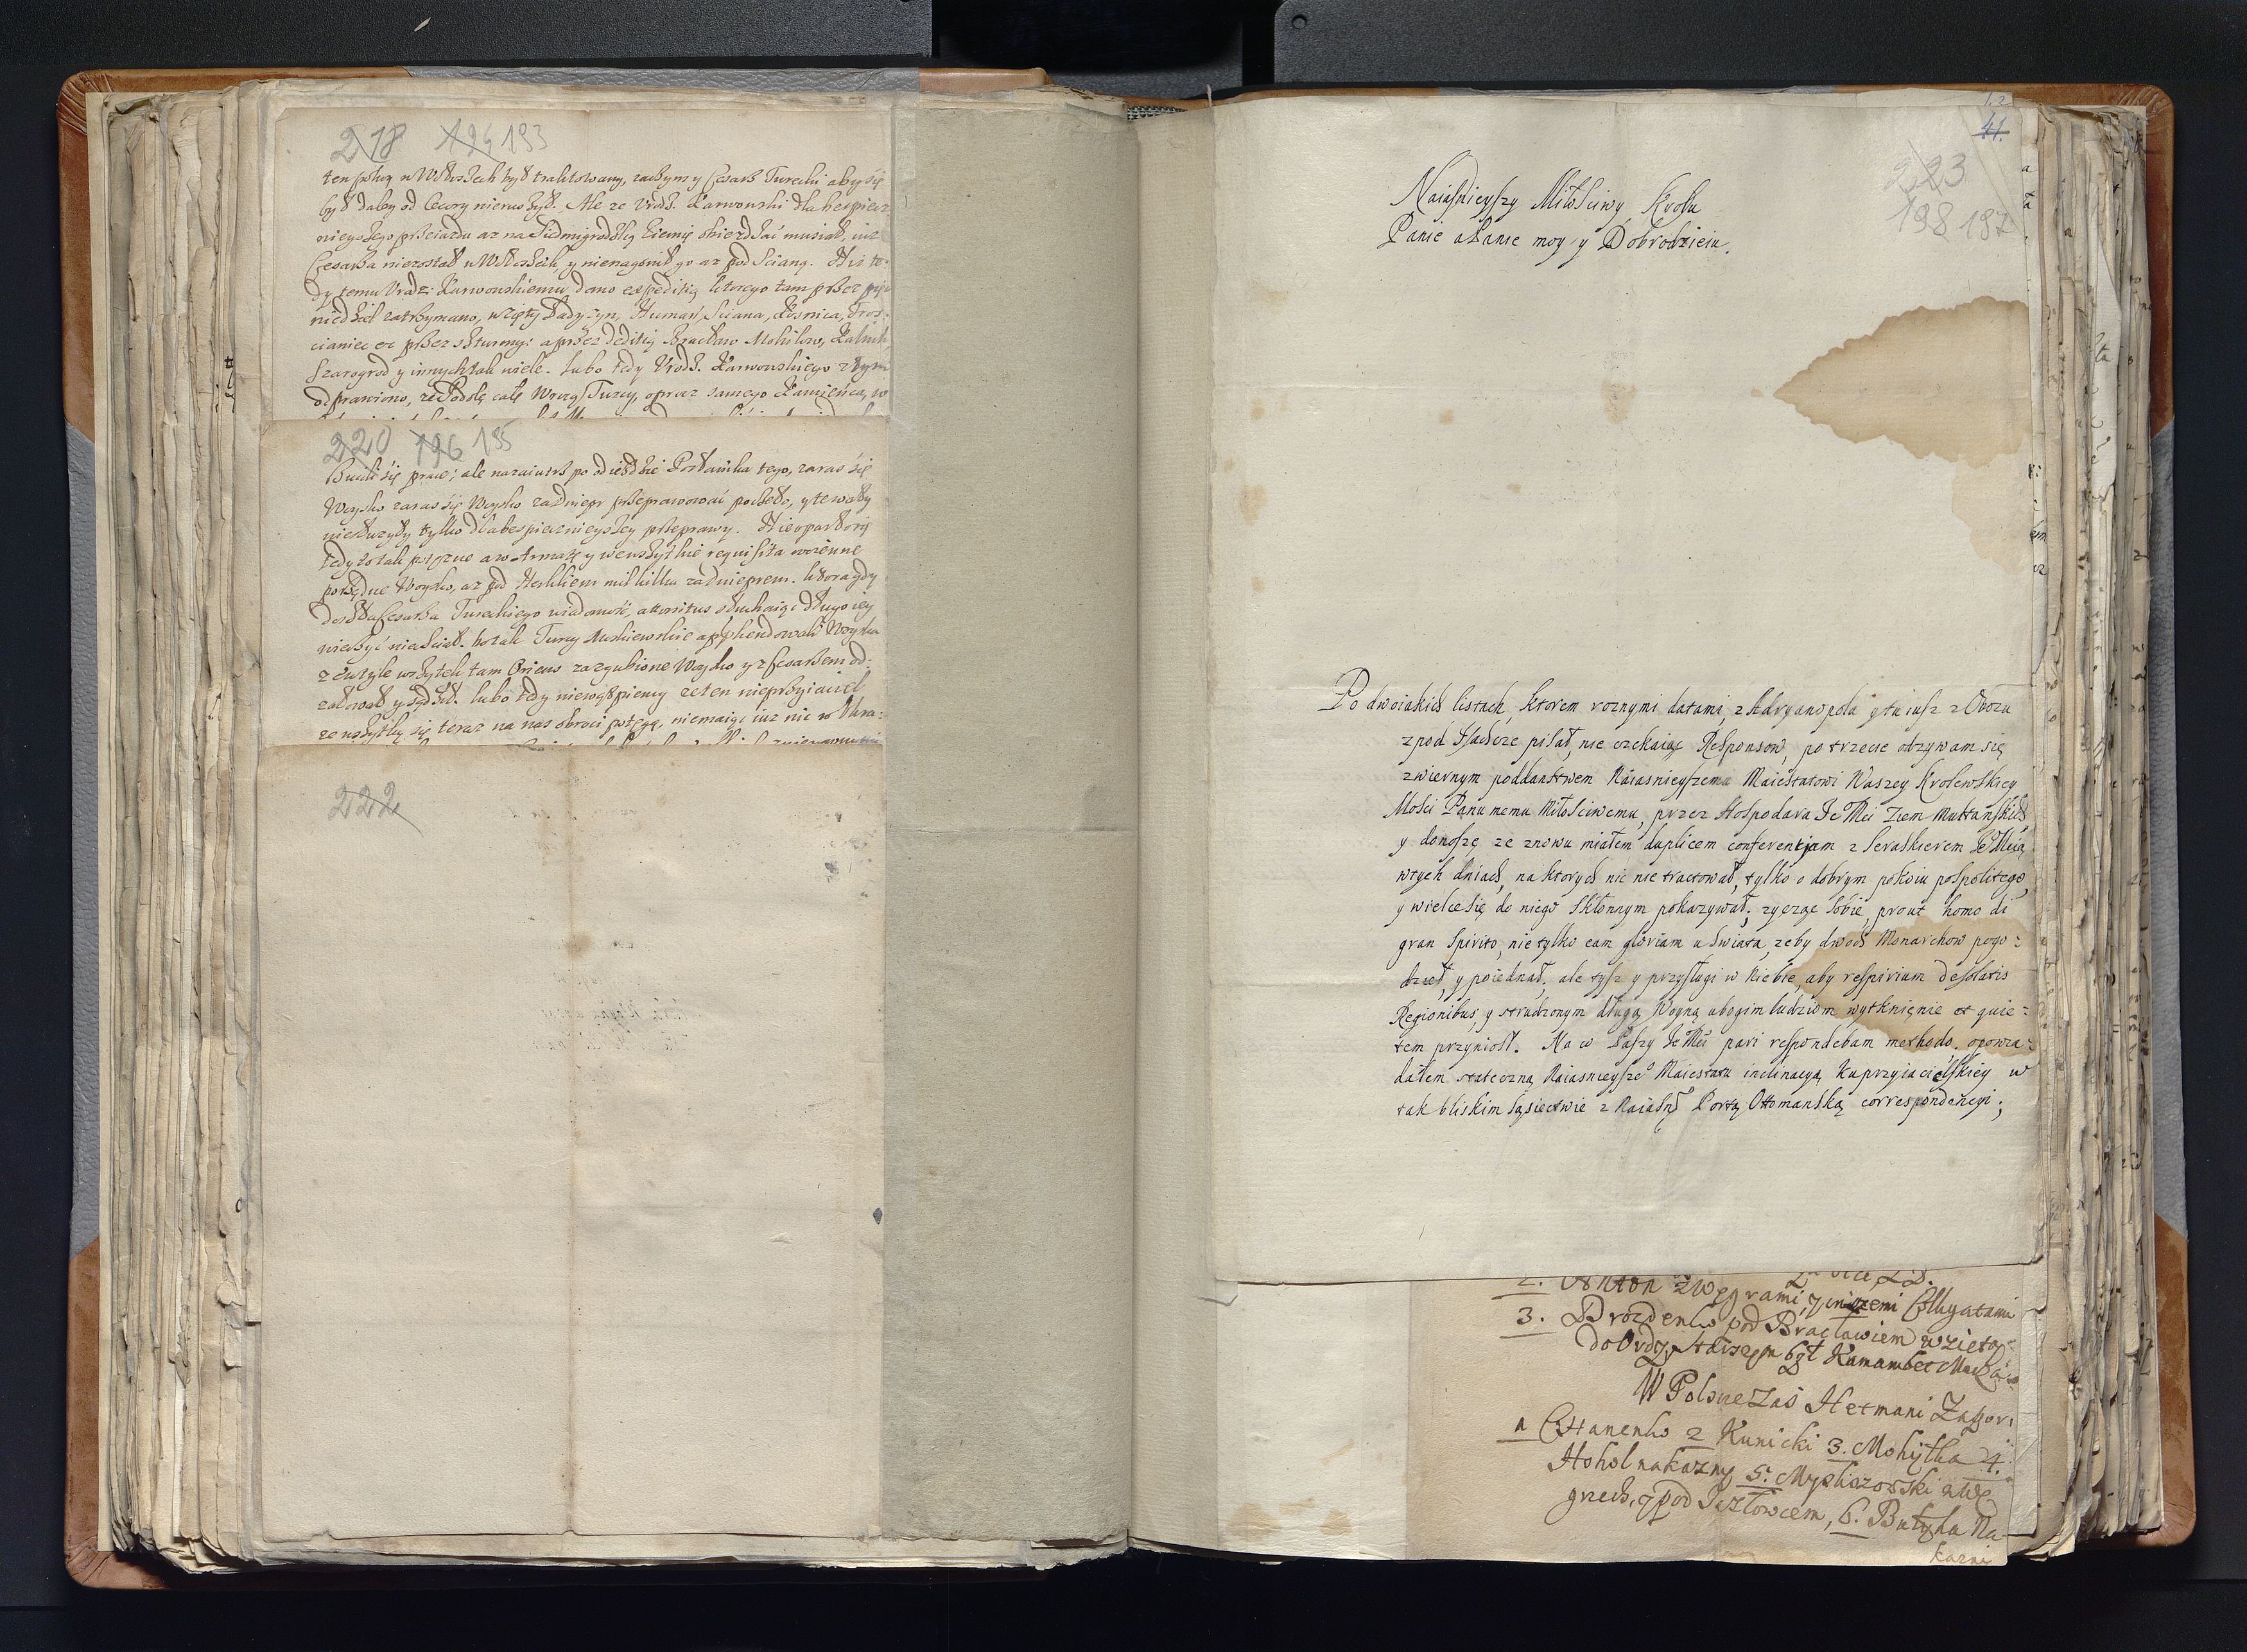 218 194 193
ten sposob w Wołoszech był traktowany, zaczym y Cesarz Turecki aby się
był daley od Cecory nieruszył. Ale ze Urodz. Karwowski dla bespiecz
nieyszego przeiazdu az na Siedmigrodzką Ziemię obiezdzać musiał, iuz
Cesarza niezostał w Wołoszech, y nienagonił go az pod Scianą.
dy temu Urodz. Karwowskiemu dano expeditią ktorego tam przez
niedziel zatrzymano, wzięty Ładyzyn, Humań, Sciana, Kosnica, Tros:
cianiec etc przez szturmy: a przez deditią Bracław Mohilow, Kalnik
Szarogrod y innych tak wiele. Lubo tedy Urodz. Karwowskiego z tym
odprawiono, ze Podole całe Wezmą Turcy, oprocz samego Kamieńca, w
220 196 195
się prace; ale nazaiutrz po odieździe Posłanika tego, zaraz się
Woysko zaraz się Woysko za Dniepr przeprawować poczęło, y te wały
niesłuzyły tylko dla bespiecznieyszey przeprawy.
tedy to tak potęzne a w Armatę y we wszytkie requisita woienne
potęzne Woysko, az pod mil kilka za Dnieprem. ktora gdy
doszła Cesarza Tureckiego wiadomość, attonitus słuchaiąc długo iey
wierzyć niechciał. bo tak Turcy Moskiewskie apprehendowali Woyska
ze wszytek tam Oriens za zgubione Woysko y z Cesarzem od:
załował y sądził. Lubo tedy niewątpiemy ze ten nieprzyiaciel
ze wszytką się teraz na nas obroci potęgą, niemaiąc iuz nic w Ukra:
222
1.2
41.
223
198 197
Naiaśnieyszy Miłościwy Krolu
Panie a Panie moy y Dobrodzieiu.
Po dwoiakich listach, ktorem roznymi datami, z Adryanopola y tu iusz z Obozu
z pod Isakcze pisał, nie czekaiąc Responsow, po trzecie odzywam się
z wiernym poddaństwem Naiasnieyszemu Maiestatowi Waszey Krolewskiey
Mości Panu memu Miłościwemu, przez Hospodara Je Mci Ziem Multańskich
y donoszę ze znowu miałem duplicem conferentiam z Seraskierem Je Mcią
w tych dniach, na ktorych nic nie tractował, tylko o dobrym pokoiu pospolitego,
y wielce się do niego skłonnym pokazywał; zycząc sobie, prout homo di
gran spirito, nie tylko eam gloriam u swiata, zeby dwoch Monarchow pogo:
dzieł, y poiednał, ale tysz y przysługi w Niebie, aby respirium desolatis
Regionibus, y strudzonym długą Woyną ubogim ludziom wytknięnie et quie:
tem przyniosł. Na co Paszy Je Mci pari respondebam methodo, opowia:
dałem stateczną Naiasnieysze° Maiestatu inclinacyą ku przyiacielskiey w
tak bliskim sąsiectwie z Naiaśną Portą Ottomanską correspondencyi;
2. Anton z Węgrami, y inszemi Colligatami
3. Drozdenko pod Bracławiem wzięto
do Ordy starszym był Kamambet Murza
W Polszcze zas Hetmani Zapor:
1 Ostanenko 2 Kunicki 3. Mohyłka 4.
Hohol nakazny 5. Myśliszowski z Wę
grzech, y pod Jazłowcem, 6. Butyka Na-
kazni